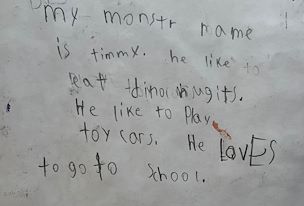 my monstr name
is timmy. he like to
eat dinonugits.
He like to Play
toy cars. He LovEs
to go to school.